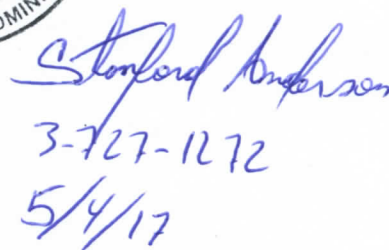 DOMINI
Stanford Anderson
3-727-1272
5/4/17